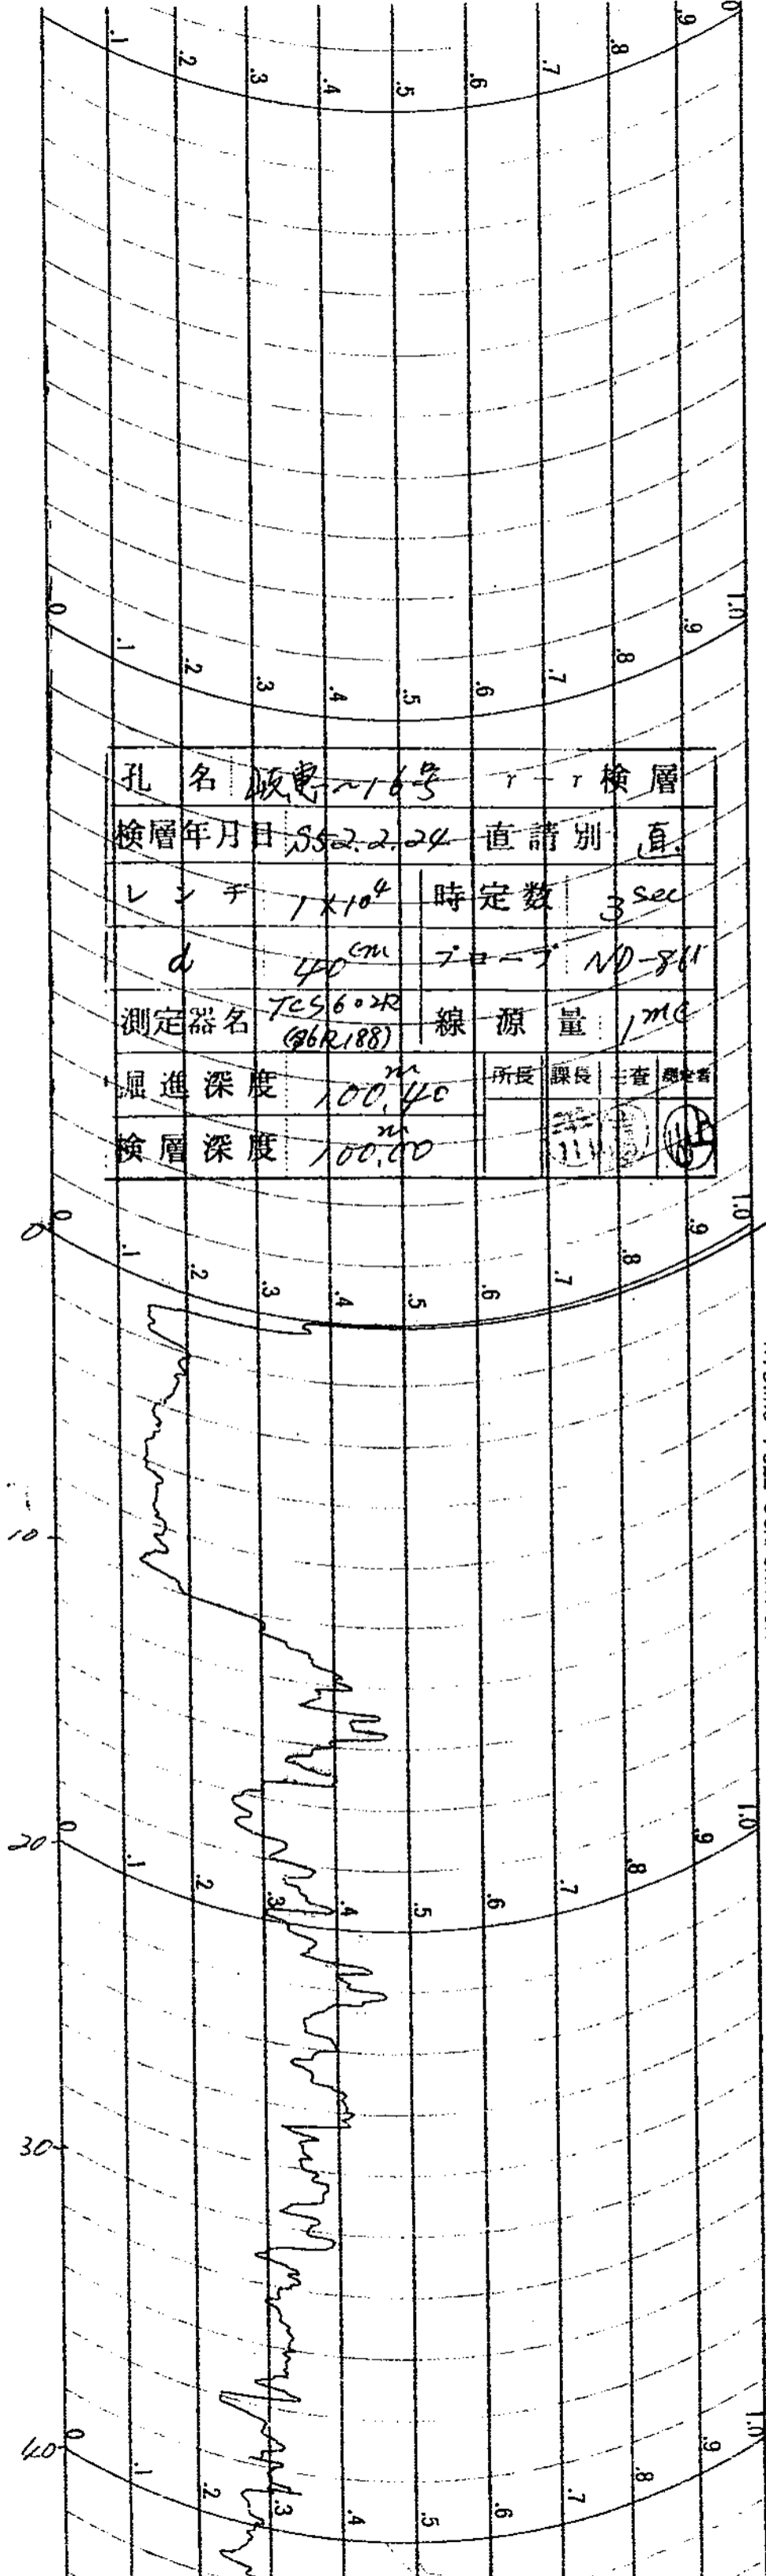 .1 .2 .3 .4 .5 .6 .7 .8 .9
0 .1 .2 .3 .4 .5 .6 .7 .8 .9 1.0
孔名 岐恵~16号 r-r検層
検層年月日 S52.2.24 直請別 直.
レンヂ 1×10⁴ 時定数 3 sec
d 40cm プローブ ND-
測定器名 TCS602R 線源量 1mc
掘進深度 100.40m 所長 課長 主査 測定者
検層深度 100.00m
0 0 .1 .2 .3 .4 .5 .6 .7 .8 .9 1.0
10
20 0 .1 .2 .3 .4 .5 .6 .7 .8 .9 1.0
30
40 0 .1 .2 .3 .4 .5 .6 .7 .8 .9 1.0